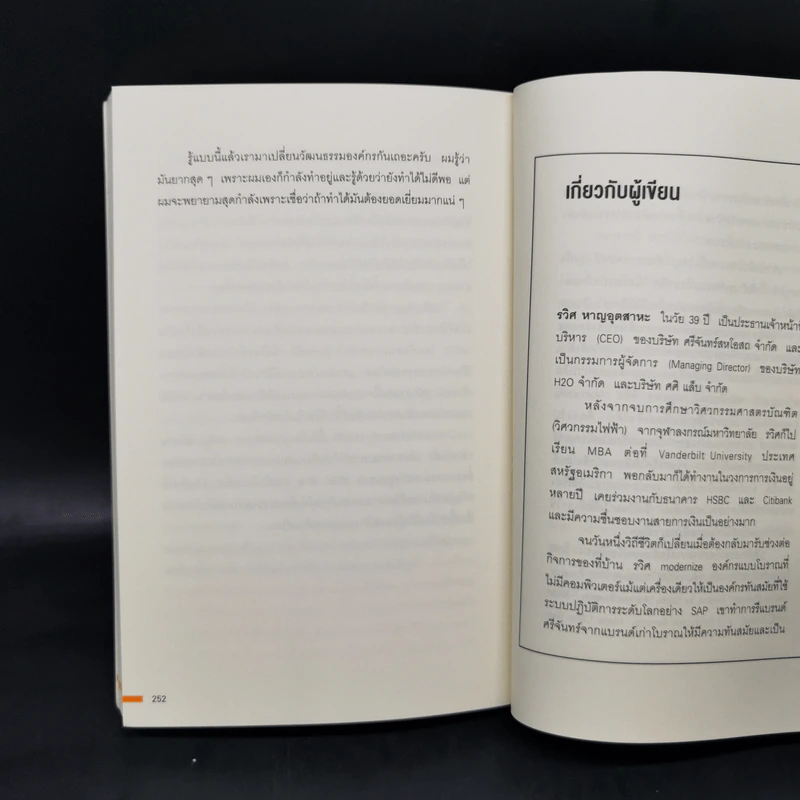 รู้แบบนี้แล้วเรามาเปลี่ยนวัฒนธรรมองค์กรกันเถอะครับ ผมรู้ว่า
มันยากสุด ๆ เพราะผมเองก็กำลังทำอยู่และรู้ด้วยว่ายังทำได้ไม่ดีพอ แต่
ผมจะพยายามสุดกำลังเพราะเชื่อว่าถ้าทำได้มันต้องยอดเยี่ยมมากแน่ ๆ
252
เกี่ยวกับผู้เขียน
รวิศ หาญอุตสาหะ ในวัย 39 ปี เป็นประธานเจ้าหน้าที่
บริหาร (CEO) ของบริษัท ศรีจันทร์สหโอสถ จำกัด และ
เป็นกรรมการผู้จัดการ (Managing Director) ของบริษัท
H2O จำกัด และบริษัท ศศิ แล็บ จำกัด
หลังจากจบการศึกษาวิศวกรรมศาสตรบัณฑิต
(วิศวกรรมไฟฟ้า) จากจุฬาลงกรณ์มหาวิทยาลัย รวิศก็ไป
เรียน MBA ต่อที่ Vanderbilt University ประเทศ
สหรัฐอเมริกา พอกลับมาก็ได้ทำงานในวงการการเงินอยู่
หลายปี เคยร่วมงานกับธนาคาร HSBC และ Citibank
และมีความชื่นชอบงานสายการเงินเป็นอย่างมาก
จนวันหนึ่งวิถีชีวิตก็เปลี่ยนเมื่อต้องกลับมารับช่วงต่อ
กิจการของที่บ้าน รวิศ modernize องค์กรแบบโบราณที่
ไม่มีคอมพิวเตอร์แม้แต่เครื่องเดียวให้เป็นองค์กรทันสมัยที่ใช้
ระบบปฏิบัติการระดับโลกอย่าง SAP เขาทำการรีแบรนด์
ศรีจันทร์จากแบรนด์เก่าโบราณให้มีความทันสมัยและเป็น